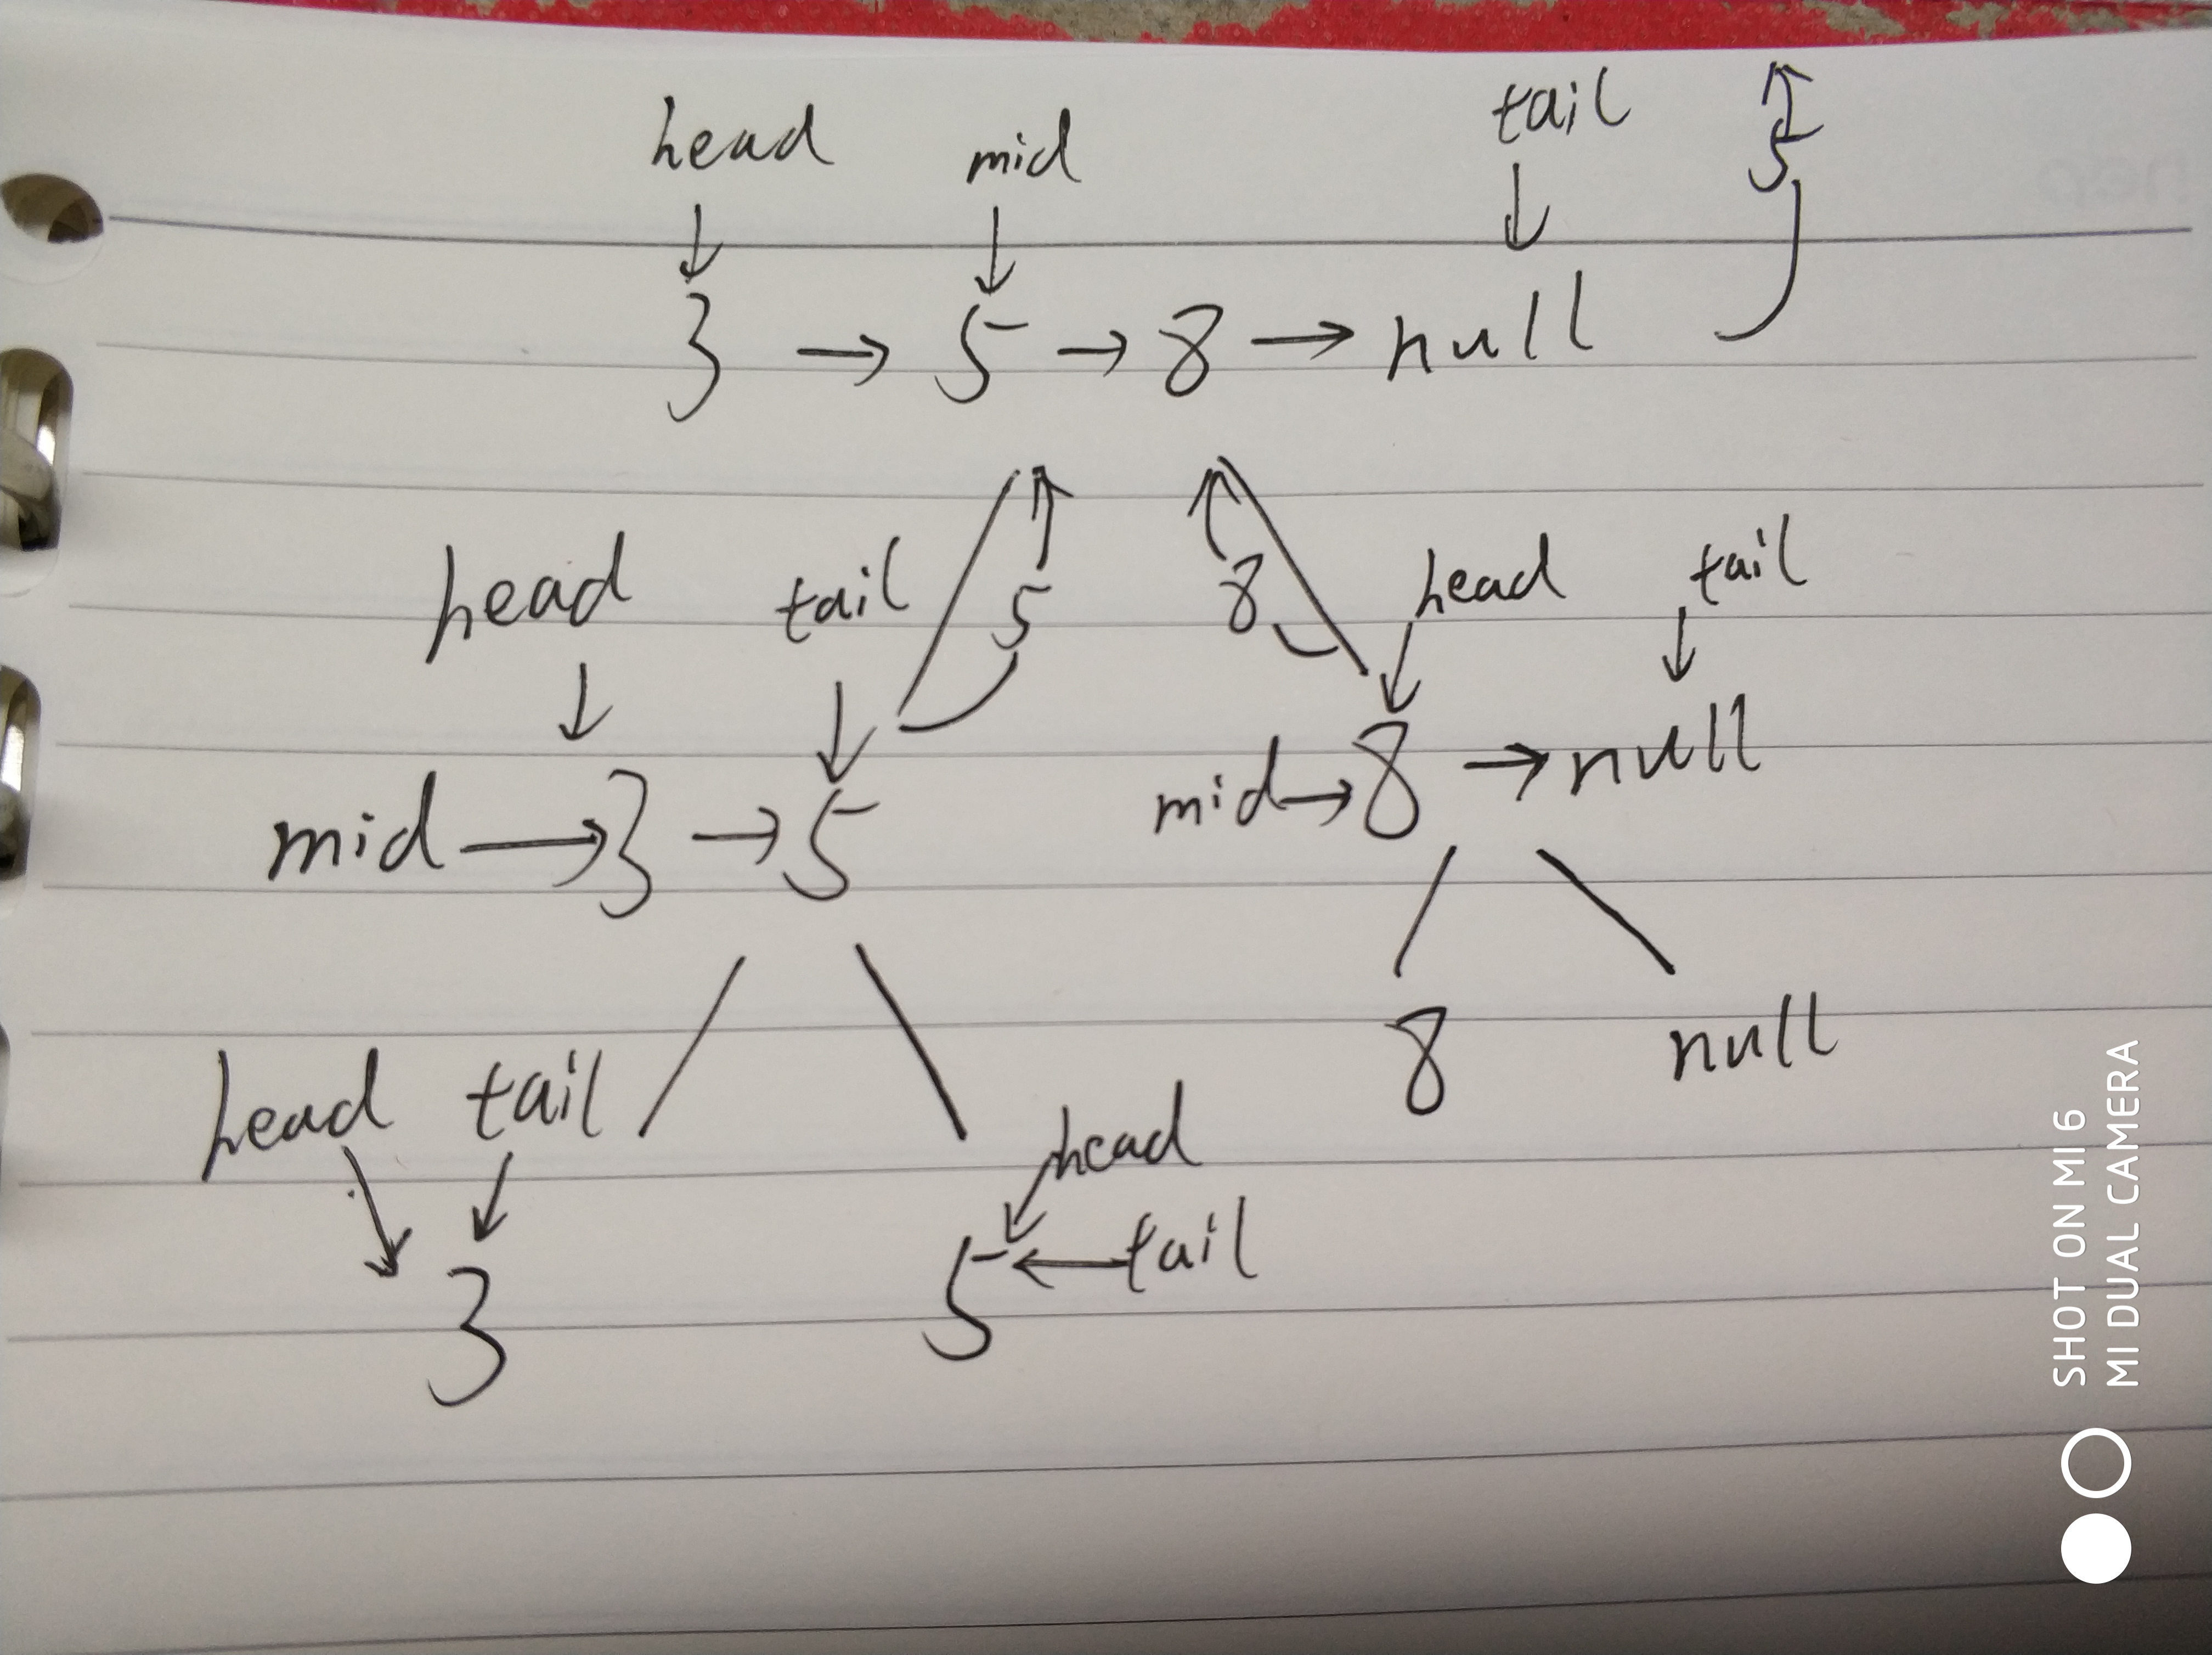 head mid tail 5
3 → 5 → 8 → null
head tail 5 8 head tail
mid → 3 → 5 mid → 8 → null
head tail head 8 null
3 5 ← tail
SHOT ON MI 6
MI DUAL CAMERA